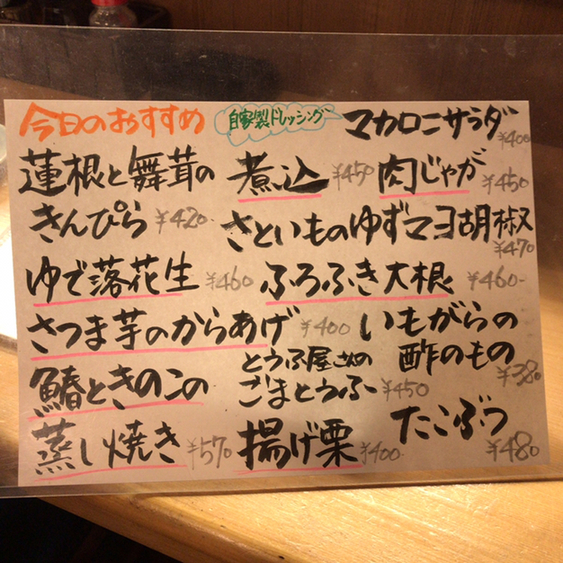 今日のおすすめ
自家製ドレッシング
マカロニサラダ ¥400
蓮根と舞茸の
きんぴら ¥420
煮込 ¥450
肉じゃが ¥450
さといものゆずマヨ胡椒
¥470
ゆで落花生 ¥460
ふろふき大根 ¥460-
さつま芋のからあげ ¥400
いもがらの
酢のもの
¥380
鰆ときのこの
蒸し焼き ¥570
とうふ屋さんの
ごまとうふ ¥450
揚げ栗 ¥400
たこぶつ
¥480